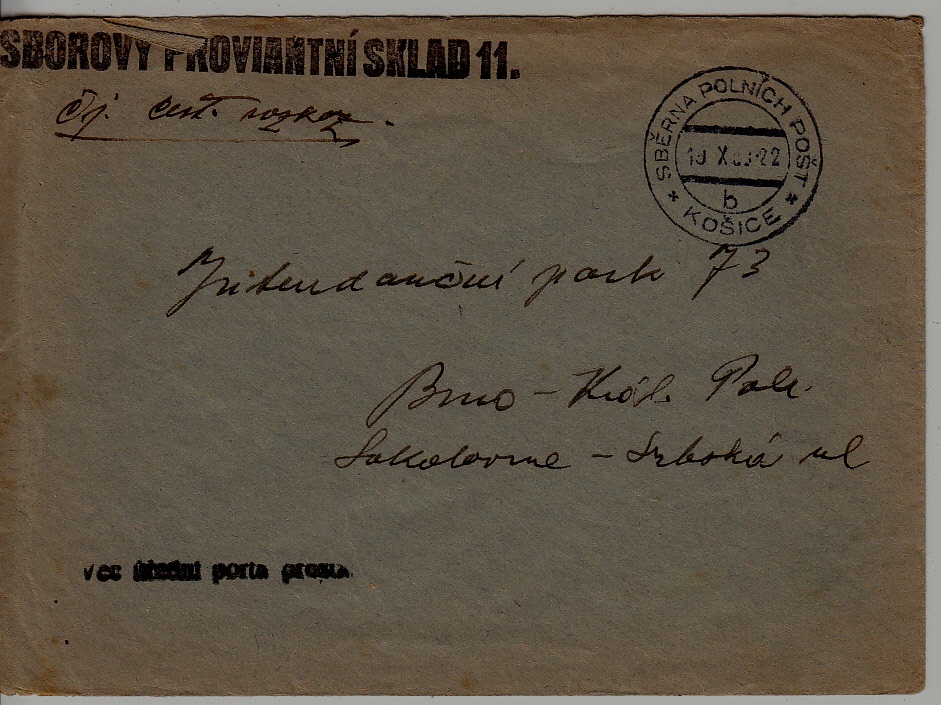 SBOROVÝ PROVIANTNÍ SKLAD 11.
Čj. cest. rozkaz.
SBĚRNA POLNÍCH POŠT
X 22
b
* KOŠICE *
Intendanční park 73
Brno - Král. Pole
Sokolovna - Srbská ul
Věc úřední porta prostá.